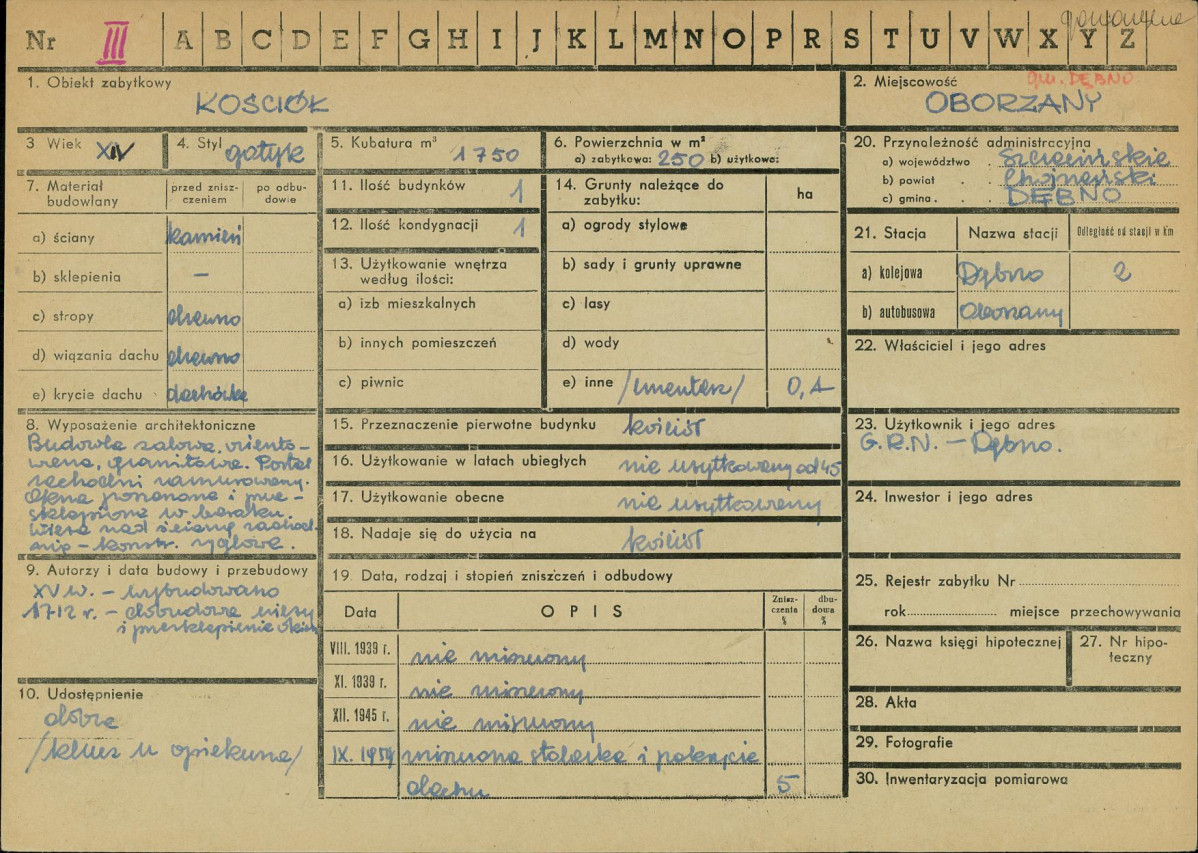 Nr III A B C D E F G H I J K L M N O P R S T U V W X Y Z
1. Obiekt zabytkowy
KOŚCIÓŁ
2. Miejscowość
gm. DĘBNO
OBORZANY
3 Wiek XIV
4. Styl gotyk
5. Kubatura m³ 1750
6. Powierzchnia w m²
a) zabytkowa: 250 b) użytkowa:
7. Materiał budowlany
przed zniszczeniem
po odbudowie
a) ściany kamień
b) sklepienia –
c) stropy drewno
d) wiązania dachu drewno
e) krycie dachu dachówka
8. Wyposażenie architektoniczne
Budowla salowa, oriento-
wana, granitowa. Portal
zachodni zamurowany.
Okna poszerzone i prze-
sklepione w koszku.
Wieża nad ścianą zachod-
nią – konstr. ryglowa.
9. Autorzy i data budowy i przebudowy
XV w. – wybudowano
1712 r. – dobudowa wieży
i przesklepienie okien
10. Udostępnienie
dobre
/klucz u opiekuna/
11. Ilość budynków 1
12. Ilość kondygnacji 1
13. Użytkowanie wnętrza
według ilości:
a) izb mieszkalnych
b) innych pomieszczeń
c) piwnic
14. Grunty należące do
zabytku:
ha
a) ogrody stylowe
b) sady i grunty uprawne
c) lasy
d) wody
e) inne /cmentarz/ 0,1
15. Przeznaczenie pierwotne budynku kościół
16. Użytkowanie w latach ubiegłych nie użytkowany od 45
17. Użytkowanie obecne nie użytkowany
18. Nadaje się do użycia na kościół
19. Data, rodzaj i stopień zniszczeń i odbudowy
Data OPIS Zniszczenia % dbudowa %
VIII. 1939 r. nie niszczony
XI. 1939 r. nie niszczony
XII. 1945 r. nie niszczony
IX. 1959 zniszczona stolarka i pokrycie
dachu 5
20. Przynależność administracyjna
a) województwo . Szczecińskie
b) powiat . . Chojneński
c) gmina . . . DĘBNO
21. Stacja Nazwa stacji Odległość od stacji w Km
a) kolejowa Dębno 2
b) autobusowa Oborzany
22. Właściciel i jego adres
23. Użytkownik i jego adres
G.R.N. – Dębno.
24. Inwestor i jego adres
25. Rejestr zabytku Nr
rok miejsce przechowywania
26. Nazwa księgi hipotecznej
27. Nr hipo-
teczny
28. Akta
29. Fotografie
30. Inwentaryzacja pomiarowa